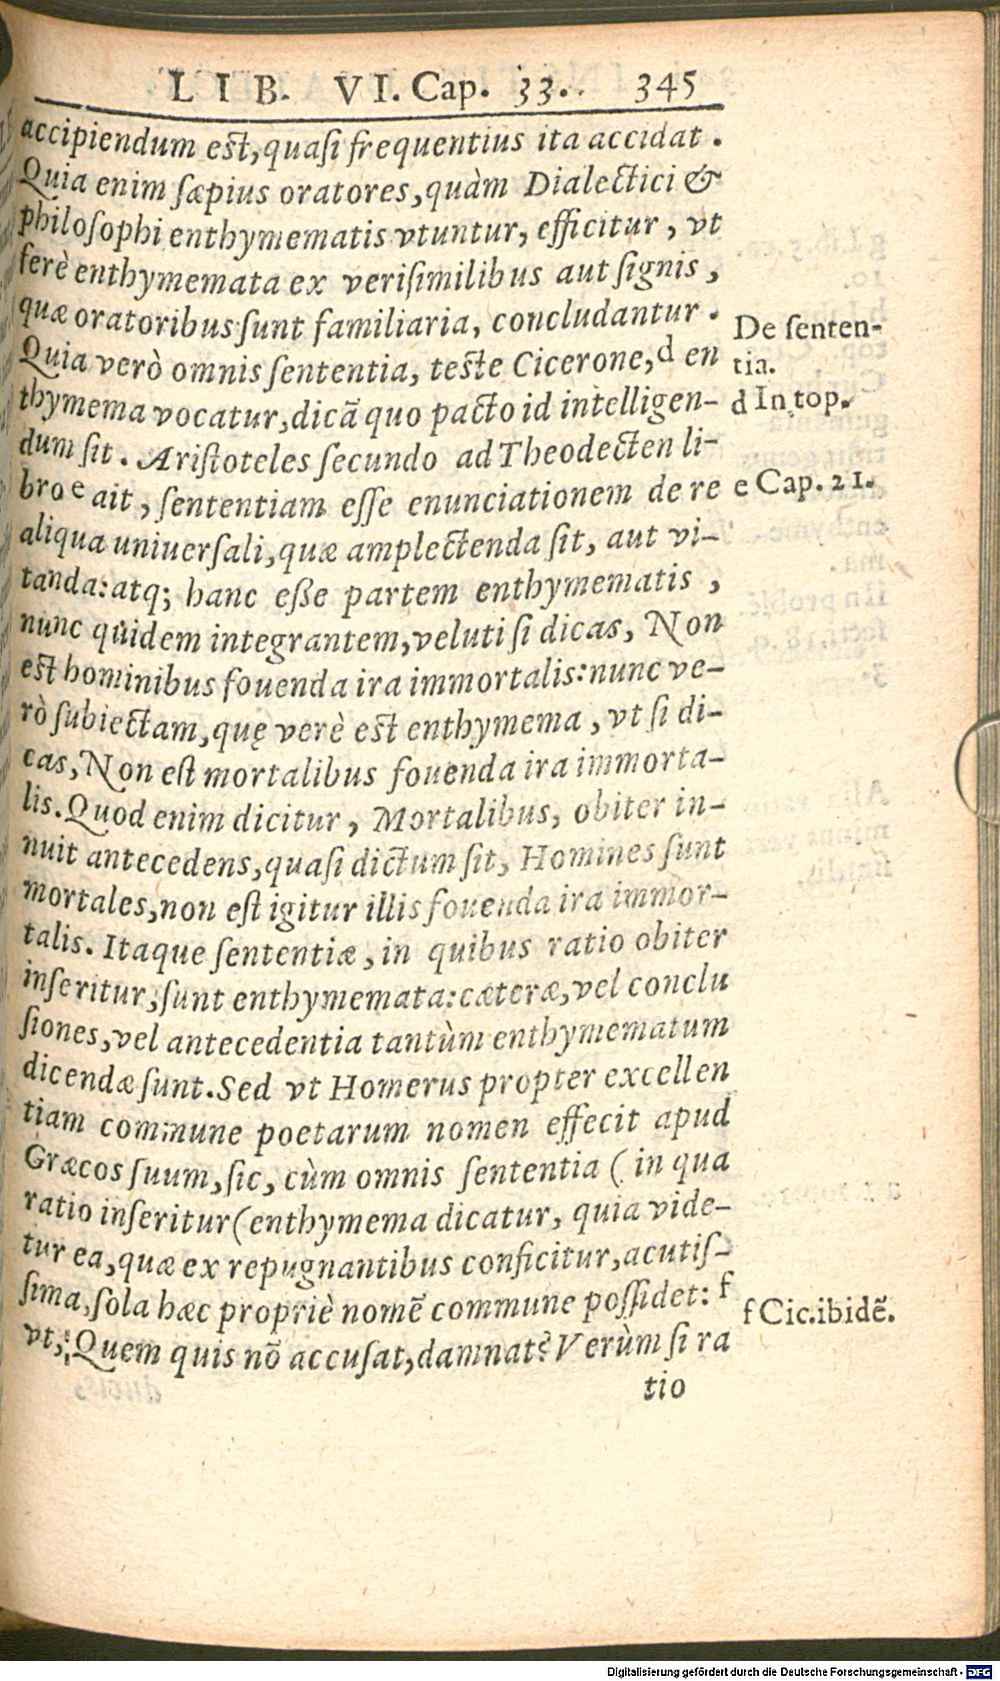 LIB. VI. Cap. 33. 345
accipiendum est, quasi frequentius ita accidat.
Quia enim sæpius oratores, quàm Dialectici &
philosophi enthymematis vtuntur, efficitur, vt
ferè enthymemata ex verisimilibus aut signis,
quæ oratoribus sunt familiaria, concludantur.
Quia verò omnis sententia, teste Cicerone, d en
thymema vocatur, dicã quo pacto id intelligen-
dum sit. Aristoteles secundo ad Theodecten li-
bro e ait, sententiam esse enunciationem de re
aliqua uniuersali, quæ amplectenda sit, aut vi-
tanda: atq; hanc esse partem enthymematis,
nunc quidem integrantem, veluti si dicas, Non
est hominibus fouenda ira immortalis: nunc ve-
rò subiectam, quę verè est enthymema, vt si di-
cas, Non est mortalibus fouenda ira immorta-
lis. Quod enim dicitur, Mortalibus, obiter in-
nuit antecedens, quasi dictum sit, Homines sunt
mortales, non est igitur illis fouenda ira immor-
talis. Itaque sententiæ, in quibus ratio obiter
inseritur, sunt enthymemata: cæteræ, vel conclu
siones, vel antecedentia tantùm enthymematum
dicendæ sunt. Sed vt Homerus propter excellen
tiam commune poetarum nomen effecit apud
Græcos suum, sic, cùm omnis sententia (in qua
ratio inseritur (enthymema dicatur, quia vide-
tur ea, quæ ex repugnantibus conficitur, acutis-
sima, sola hæc propriè nomẽ commune possidet: f
vt, Quem quis nõ accusat, damnat? Verùm si ra
tio
De senten-
tia.
d In top.
e Cap. 21.
f Cic. ibidẽ.
Digitalisierung gefördert durch die Deutsche Forschungsgemeinschaft - DFG